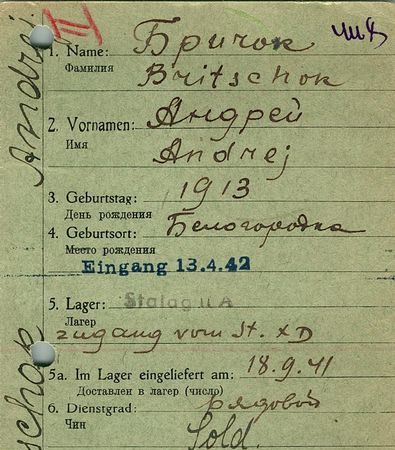 IV
1. Name: Бричок
Фамилия
Britschok
2. Vornamen: Андрей
Имя
Andrej
3. Geburtstag: 1913
День рождения
4. Geburtsort: Белогородка
Место рождения
Eingang 13.4.42
5. Lager: Stalag II A
Лагер
zugang vom St. XD
5a. Im Lager eingeliefert am: 18.9.41
Доставлен в лагер (число)
6. Dienstgrad: рядовой
Чин
Sold.
Andrej
schok